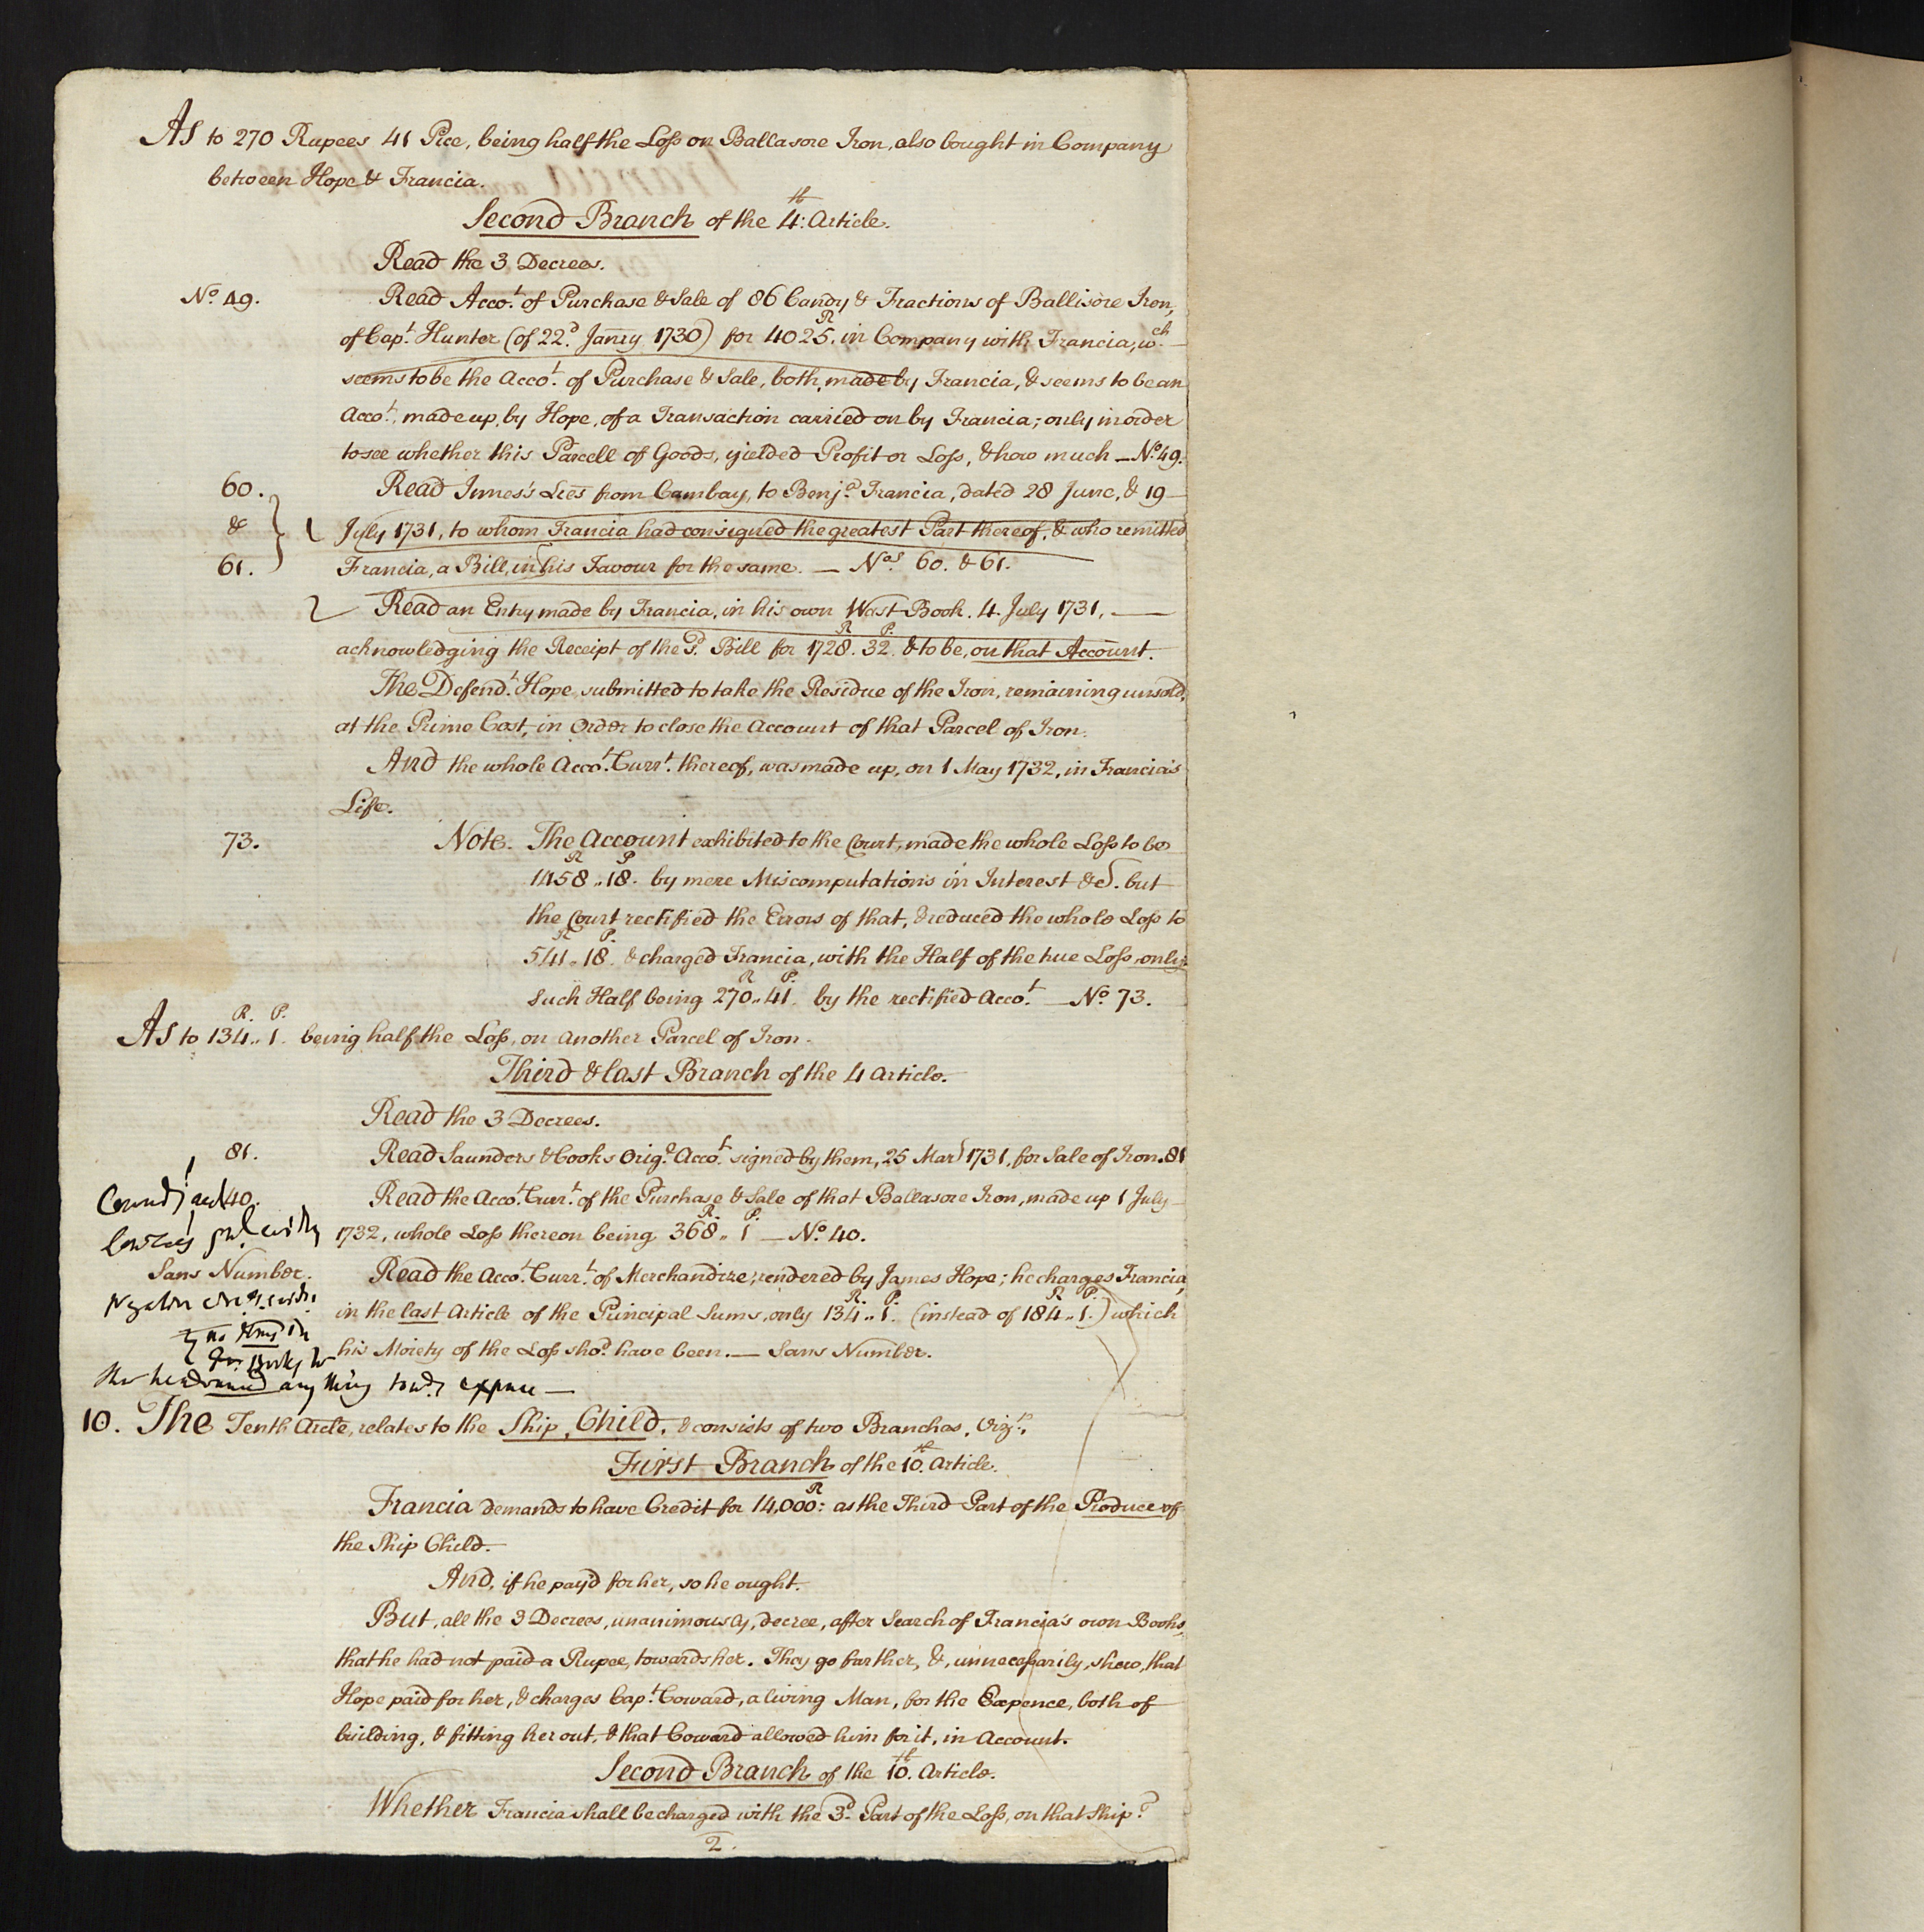 As to 270 Rupees 41 Pice, being half the Loss on Ballasore Iron, also bought in Company
between Hope & Francia.
Second Branch of the 4:th Article.
Read the 3 Decrees.
No. 49. Read Acco.t of Purchase & Sale of 86 Candy & Fractions of Ballisore Iron,
of Cap.t Hunter (of 22.d Janry 1730) for 4025.R in Company with Francia, w.ch
seems to be the Acco.t of Purchase & Sale, both, made by Francia, & seems to be an
Acco.t, made up, by Hope, of a Transaction carried on by Francia; only in order
to see whether this Parcell of Goods, yielded Profit or Loss, & how much — No. 49.
60. Read Innes's Lres from Cambay, to Benj.a Francia, dated 28 June, & 19
& July 1731, to whom Francia had consigned the greatest Part thereof, & who remitted
61. Francia, a Bill, in his Favour for the same. — Nos. 60. & 61.
Read an Entry made by Francia, in his own Wast Book. 4 July 1731, —
acknowledging the Receipt of the s.d Bill for 1728.R 32.P & to be, on that Account.
The Defend.t Hope submitted to take the Residue of the Iron, remaining unsold,
at the Prime Cost, in Order to close the Account of that Parcel of Iron.
And the whole Acco.t Curr.t thereof, was made up, on 1 May 1732, in Francia's
Life.
73. Note. The Account exhibited to the Court, made the whole Loss to be
1458.R 18.P by mere Miscomputations in Interest &c. but
the Court rectified the Errors of that, & reduced the whole Loss to
541.R 18.P & charged Francia, with the Half of the true Loss, only.
Such Half being 270.R 41.P by the rectified Acco.t — No. 73.
As to 134.R 1.P being half the Loss, on another Parcel of Iron.
Third & last Branch of the 4 Article.
Read the 3 Decrees.
81. Read Saunders & Cooks Orig.l Acco.t signed by them, 25 Mar 1731, for Sale of Iron. 81
40. Read the Acco.t Curr.t of the Purchase & Sale of that Ballasore Iron, made up 1 July
1732, whole Loss thereon being 368.R 1.P — No. 40.
Sans Number. Read the Acco.t Curr.t of Merchandize, rendered by James Hope; he charges Francia,
in the last Article of the Principal Sums, only 134.R 1.P (instead of 184.R 1.P) which
his Moiety of the Loss sho.d have been. — Sans Number.
any thing tow.ds expence —
10. The Tenth Arcle, relates to the Ship, Child, & consists of two Branches, Vizt.
First Branch of the 10.th Article.
Francia demands to have Credit for 14,000:R as the Third Part of the Produce of
the Ship Child.
And, if he pay'd for her, so he ought.
But, all the 3 Decrees, unanimously, decree, after Search of Francia's own Books,
that he had not paid a Rupee, towards her. They go farther, &, unnecessarily, shew, that
Hope paid for her, & charges Cap.t Coward, a living Man, for the Expence, both of
building, & fitting her out, & that Coward allowed him for it, in Account.
Second Branch of the 10.th Article.
Whether Francia shall be charged with the 3.d Part of the Loss, on that Ship?
2.